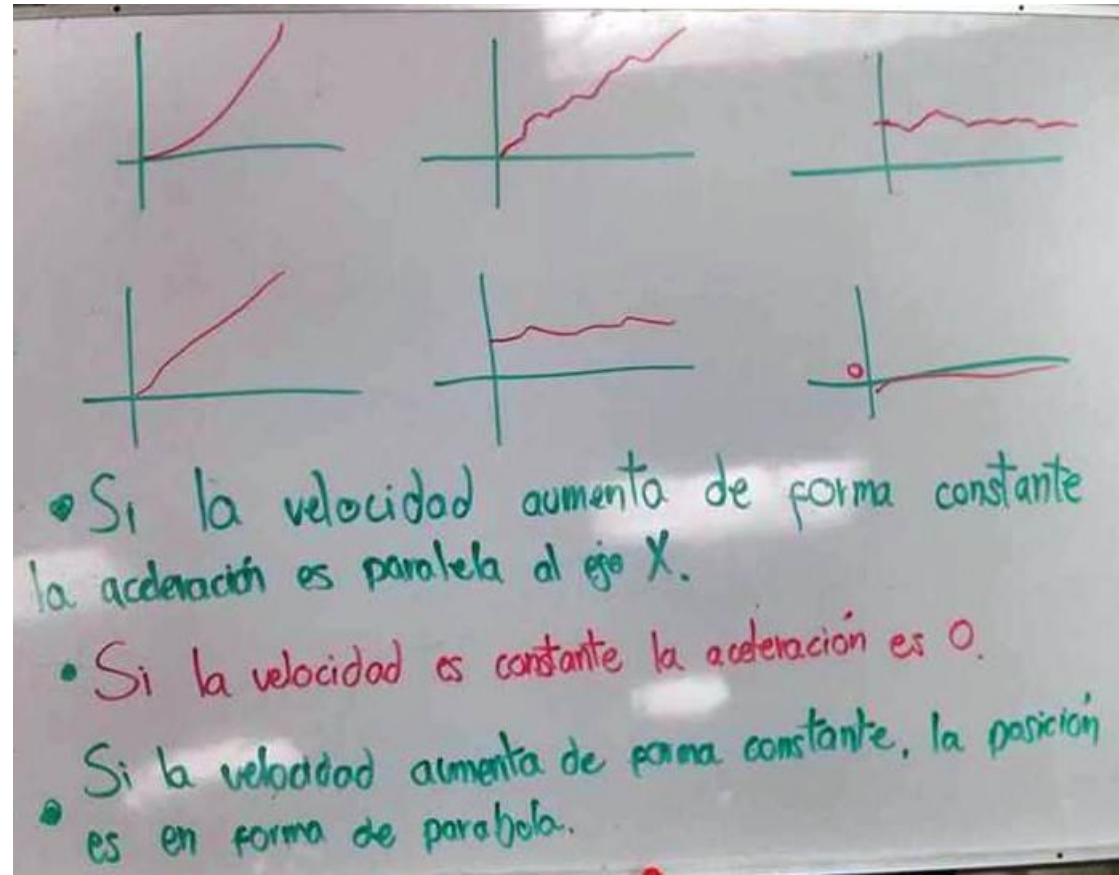 O
• Si la velocidad aumenta de forma constante
la aceleración es paralela al eje X.
• Si la velocidad es constante la aceleración es 0.
Si la velocidad aumenta de forma constante, la posición
• es en forma de parabola.